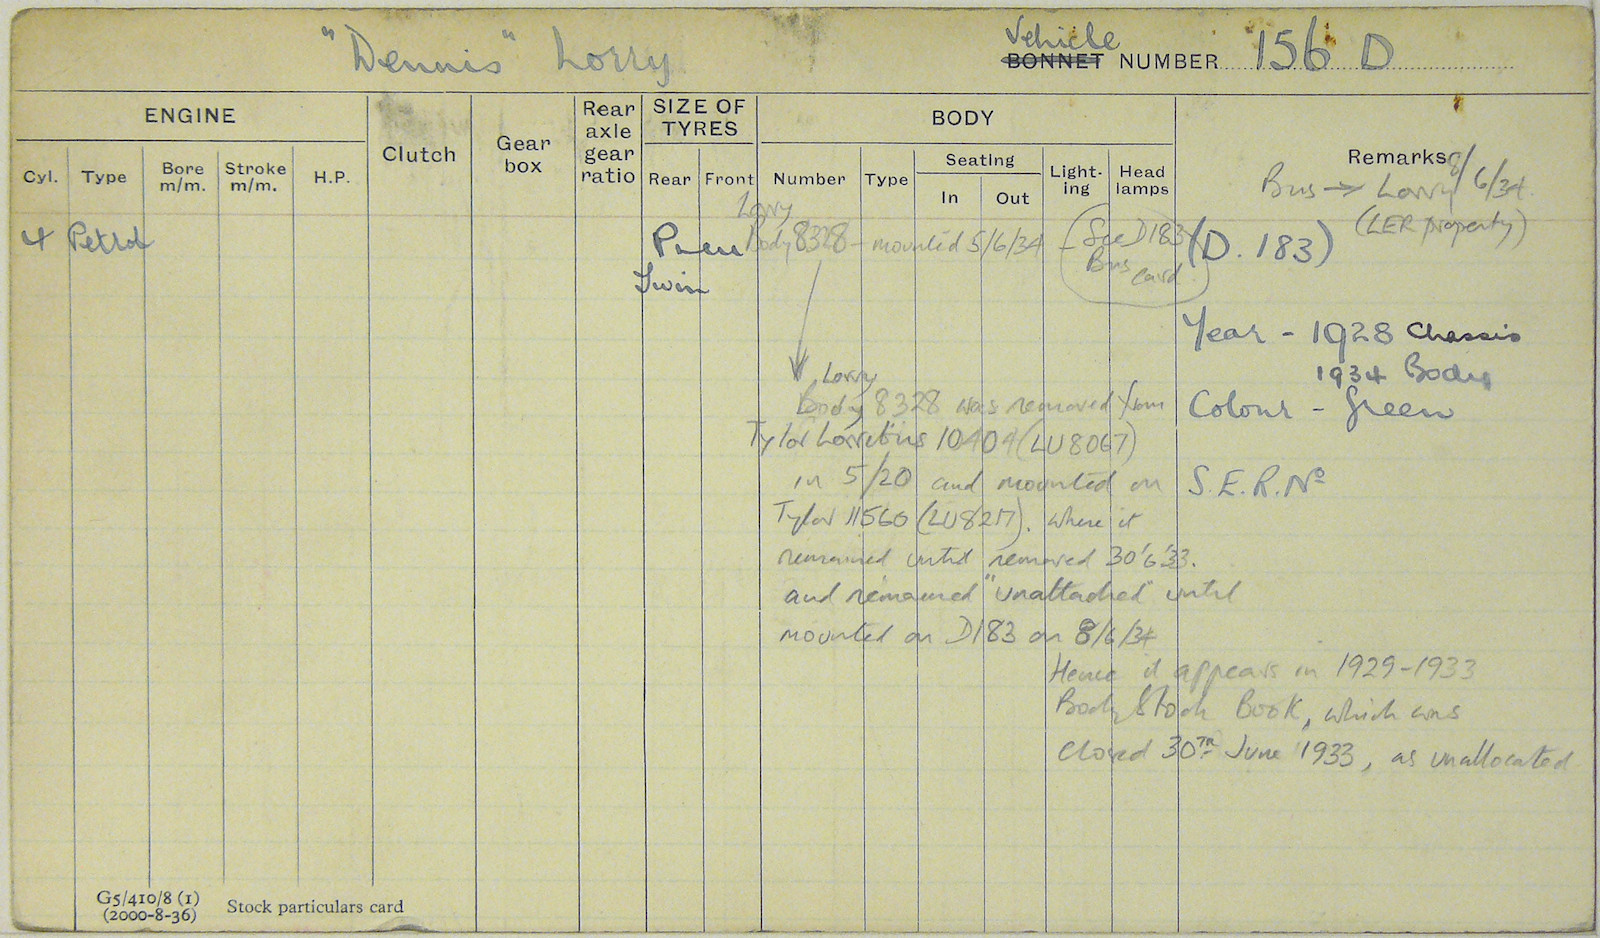 "Dennis" Lorry
Vehicle
BONNET NUMBER 156 D
ENGINE
Cyl. Type Bore m/m. Stroke m/m. H.P.
Clutch
Gear box
Rear axle gear ratio
SIZE OF TYRES
Rear Front
BODY
Number Type
Seating
In Out
Light-ing
Head lamps
Remarks
Bus → Lorry 8/6/34.
(LER property)
4 Petrol
Pneu
Twin
Lorry
Body 8328 – mounted 5/6/34 – (See D183
Bus card.)
(D. 183)
Year - 1928 Chassis
1934 Body
Colour - Green
S.E.R. No
Lorry
Body 8328 was removed from
Tylor Lorribus 10404 (LU8067)
in 5/20 and mounted on
Tylor 11560 (LU8217). where it
remained until removed 30'6'33.
and remained "unattached" until
mounted on D183 on 8/6/34
Hence it appears in 1929-1933
Body Stock Book, which was
closed 30TH June 1933, as unallocated
G5/410/8 (1)
(2000-8-36)
Stock particulars card